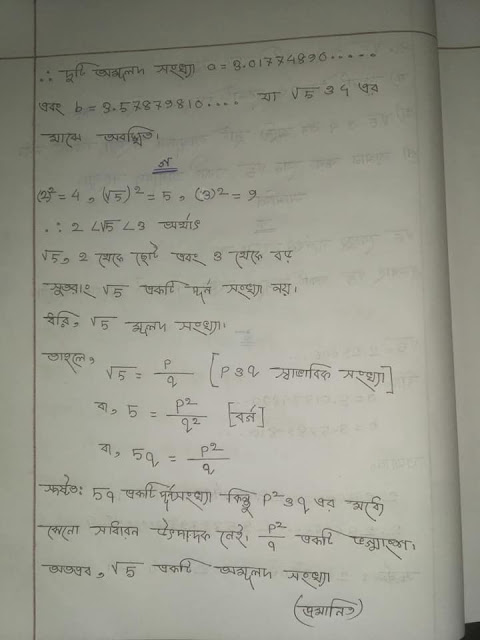 ∴ দুটি অমূলদ সংখ্যা a = 3.01774890.....
এবং b = 3.57879810.... যা √5 ও 4 এর
মাঝে অবস্থিত।
গ
(2)² = 4, (√5)² = 5, (3)² = 9
∴ 2 < √5 < 3 অর্থাৎ
√5, 2 থেকে ছোট এবং 3 থেকে বড়
সুতরাং √5 একটি পূর্ন সংখ্যা নয়।
ধরি, √5 মূলদ সংখ্যা।
তাহলে,
√5 = p/q [p ও q স্বাভাবিক সংখ্যা]
বা, 5 = p²/q² [বর্গ]
বা, 5q = p²/q
স্পষ্টত: 5q একটি পূর্নসংখ্যা কিন্তু p² ও q এর মধ্যে
কোনো সাধারন উৎপাদক নেই। p²/q একটি ভগ্নাংশ।
অতএব, √5 একটি অমূলদ সংখ্যা
(প্রমানিত)